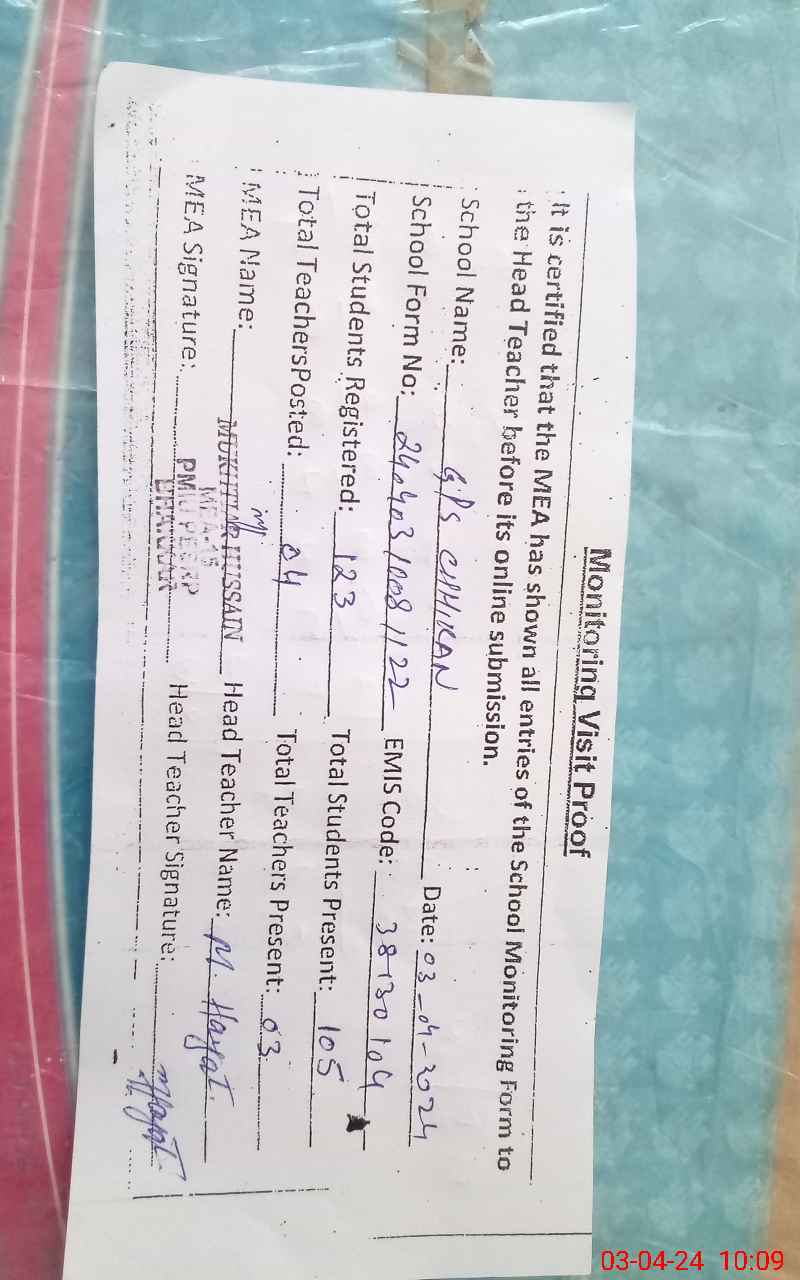 Monitoring Visit Proof
It is certified that the MEA has shown all entries of the School Monitoring Form to
the Head Teacher before its online submission.
School Name: GPS CHHIKAN Date: 03-04-2024
School Form No: 24040310081122 EMIS Code: 38130104
Total Students Registered: 123 Total Students Present: 105
Total TeachersPosted: 04 Total Teachers Present: 03
MEA Name: MUKHTIAR HUSSAIN Head Teacher Name: M. Hayat
MEA-15
MEA Signature: Head Teacher Signature: M Hayat
03-04-24 10:09